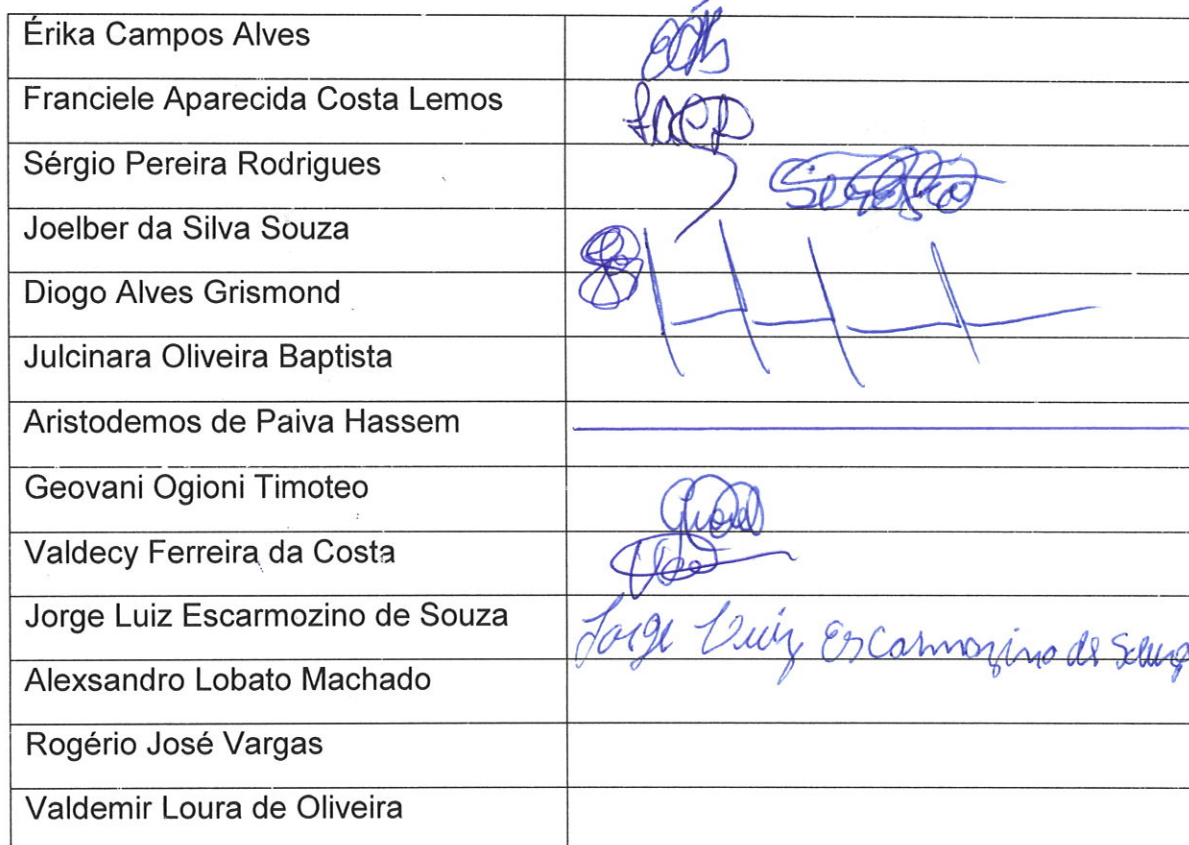 Érika Campos Alves
Franciele Aparecida Costa Lemos
Sérgio Pereira Rodrigues
Joelber da Silva Souza
Diogo Alves Grismond
Julcinara Oliveira Baptista
Aristodemos de Paiva Hassem
Geovani Ogioni Timoteo
Valdecy Ferreira da Costa
Jorge Luiz Escarmozino de Souza Jorge Luiz Escarmozino de Souza
Alexsandro Lobato Machado
Rogério José Vargas
Valdemir Loura de Oliveira